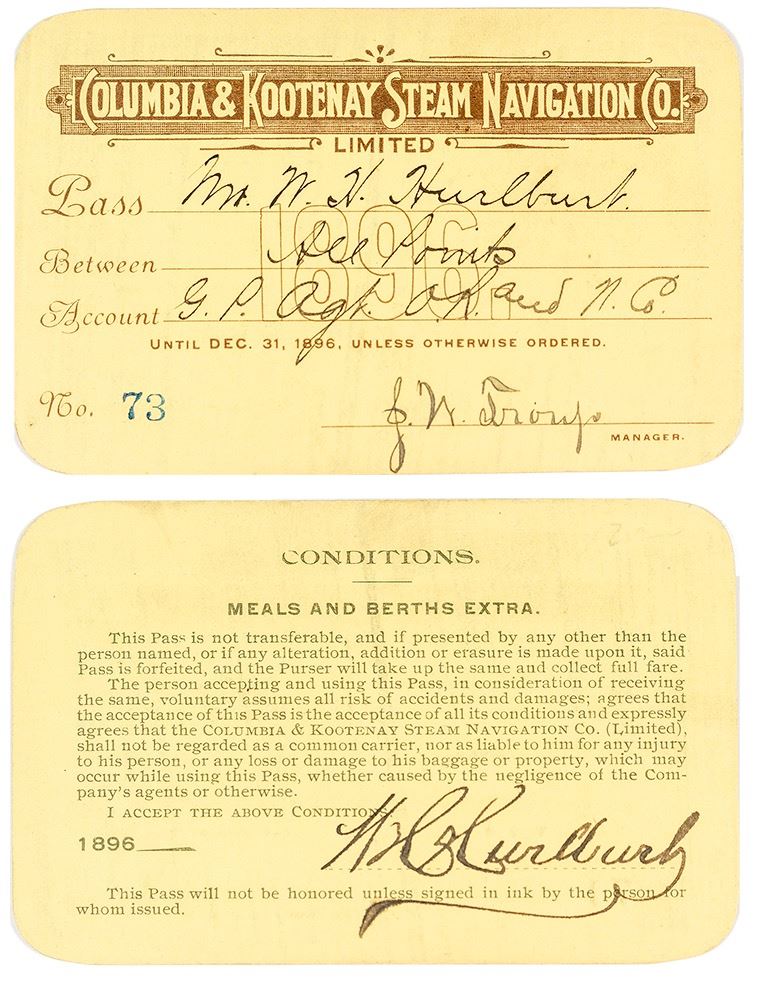 COLUMBIA & KOOTENAY STEAM NAVIGATION CO.
LIMITED
Pass Mr. W. H. Hurlburt.
1896
Between All Points
Account G. P. Agt. O.R. and N. Co.
UNTIL DEC. 31, 1896, UNLESS OTHERWISE ORDERED.
No. 73
J. W. Troup
MANAGER.
CONDITIONS.
MEALS AND BERTHS EXTRA.
This Pass is not transferable, and if presented by any other than the
person named, or if any alteration, addition or erasure is made upon it, said
Pass is forfeited, and the Purser will take up the same and collect full fare.
The person accepting and using this Pass, in consideration of receiving
the same, voluntary assumes all risk of accidents and damages; agrees that
the acceptance of this Pass is the acceptance of all its conditions and expressly
agrees that the COLUMBIA & KOOTENAY STEAM NAVIGATION CO. (Limited),
shall not be regarded as a common carrier, nor as liable to him for any injury
to his person, or any loss or damage to his baggage or property, which may
occur while using this Pass, whether caused by the negligence of the Com-
pany's agents or otherwise.
I ACCEPT THE ABOVE CONDITIONS
1896 W H Hurlburt
This Pass will not be honored unless signed in ink by the person for
whom issued.